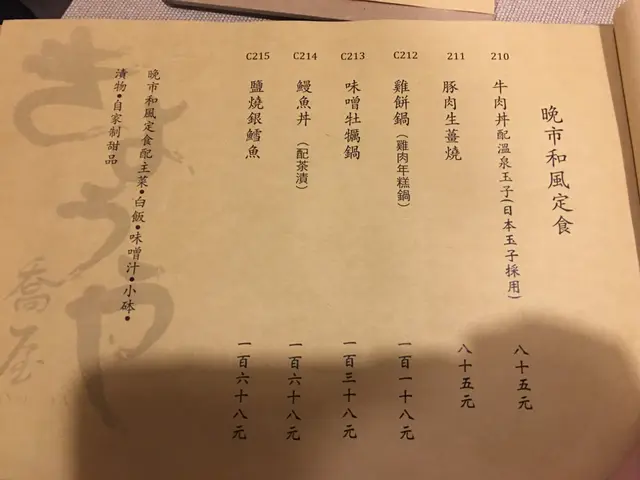 晚市和風定食
210
牛肉丼配溫泉玉子(日本玉子採用)
八十五元
211
豚肉生薑燒
八十五元
C212
雞餅鍋(雞肉年糕鍋)
一百一十八元
C213
味噌牡蠣鍋
一百三十八元
C214
鰻魚丼 (配茶漬)
一百六十八元
C215
鹽燒銀鱈魚
一百六十八元
晚市和風定食配主菜•白飯•味噌汁•小砵•
漬物•自家制甜品
きょうや
喬屋